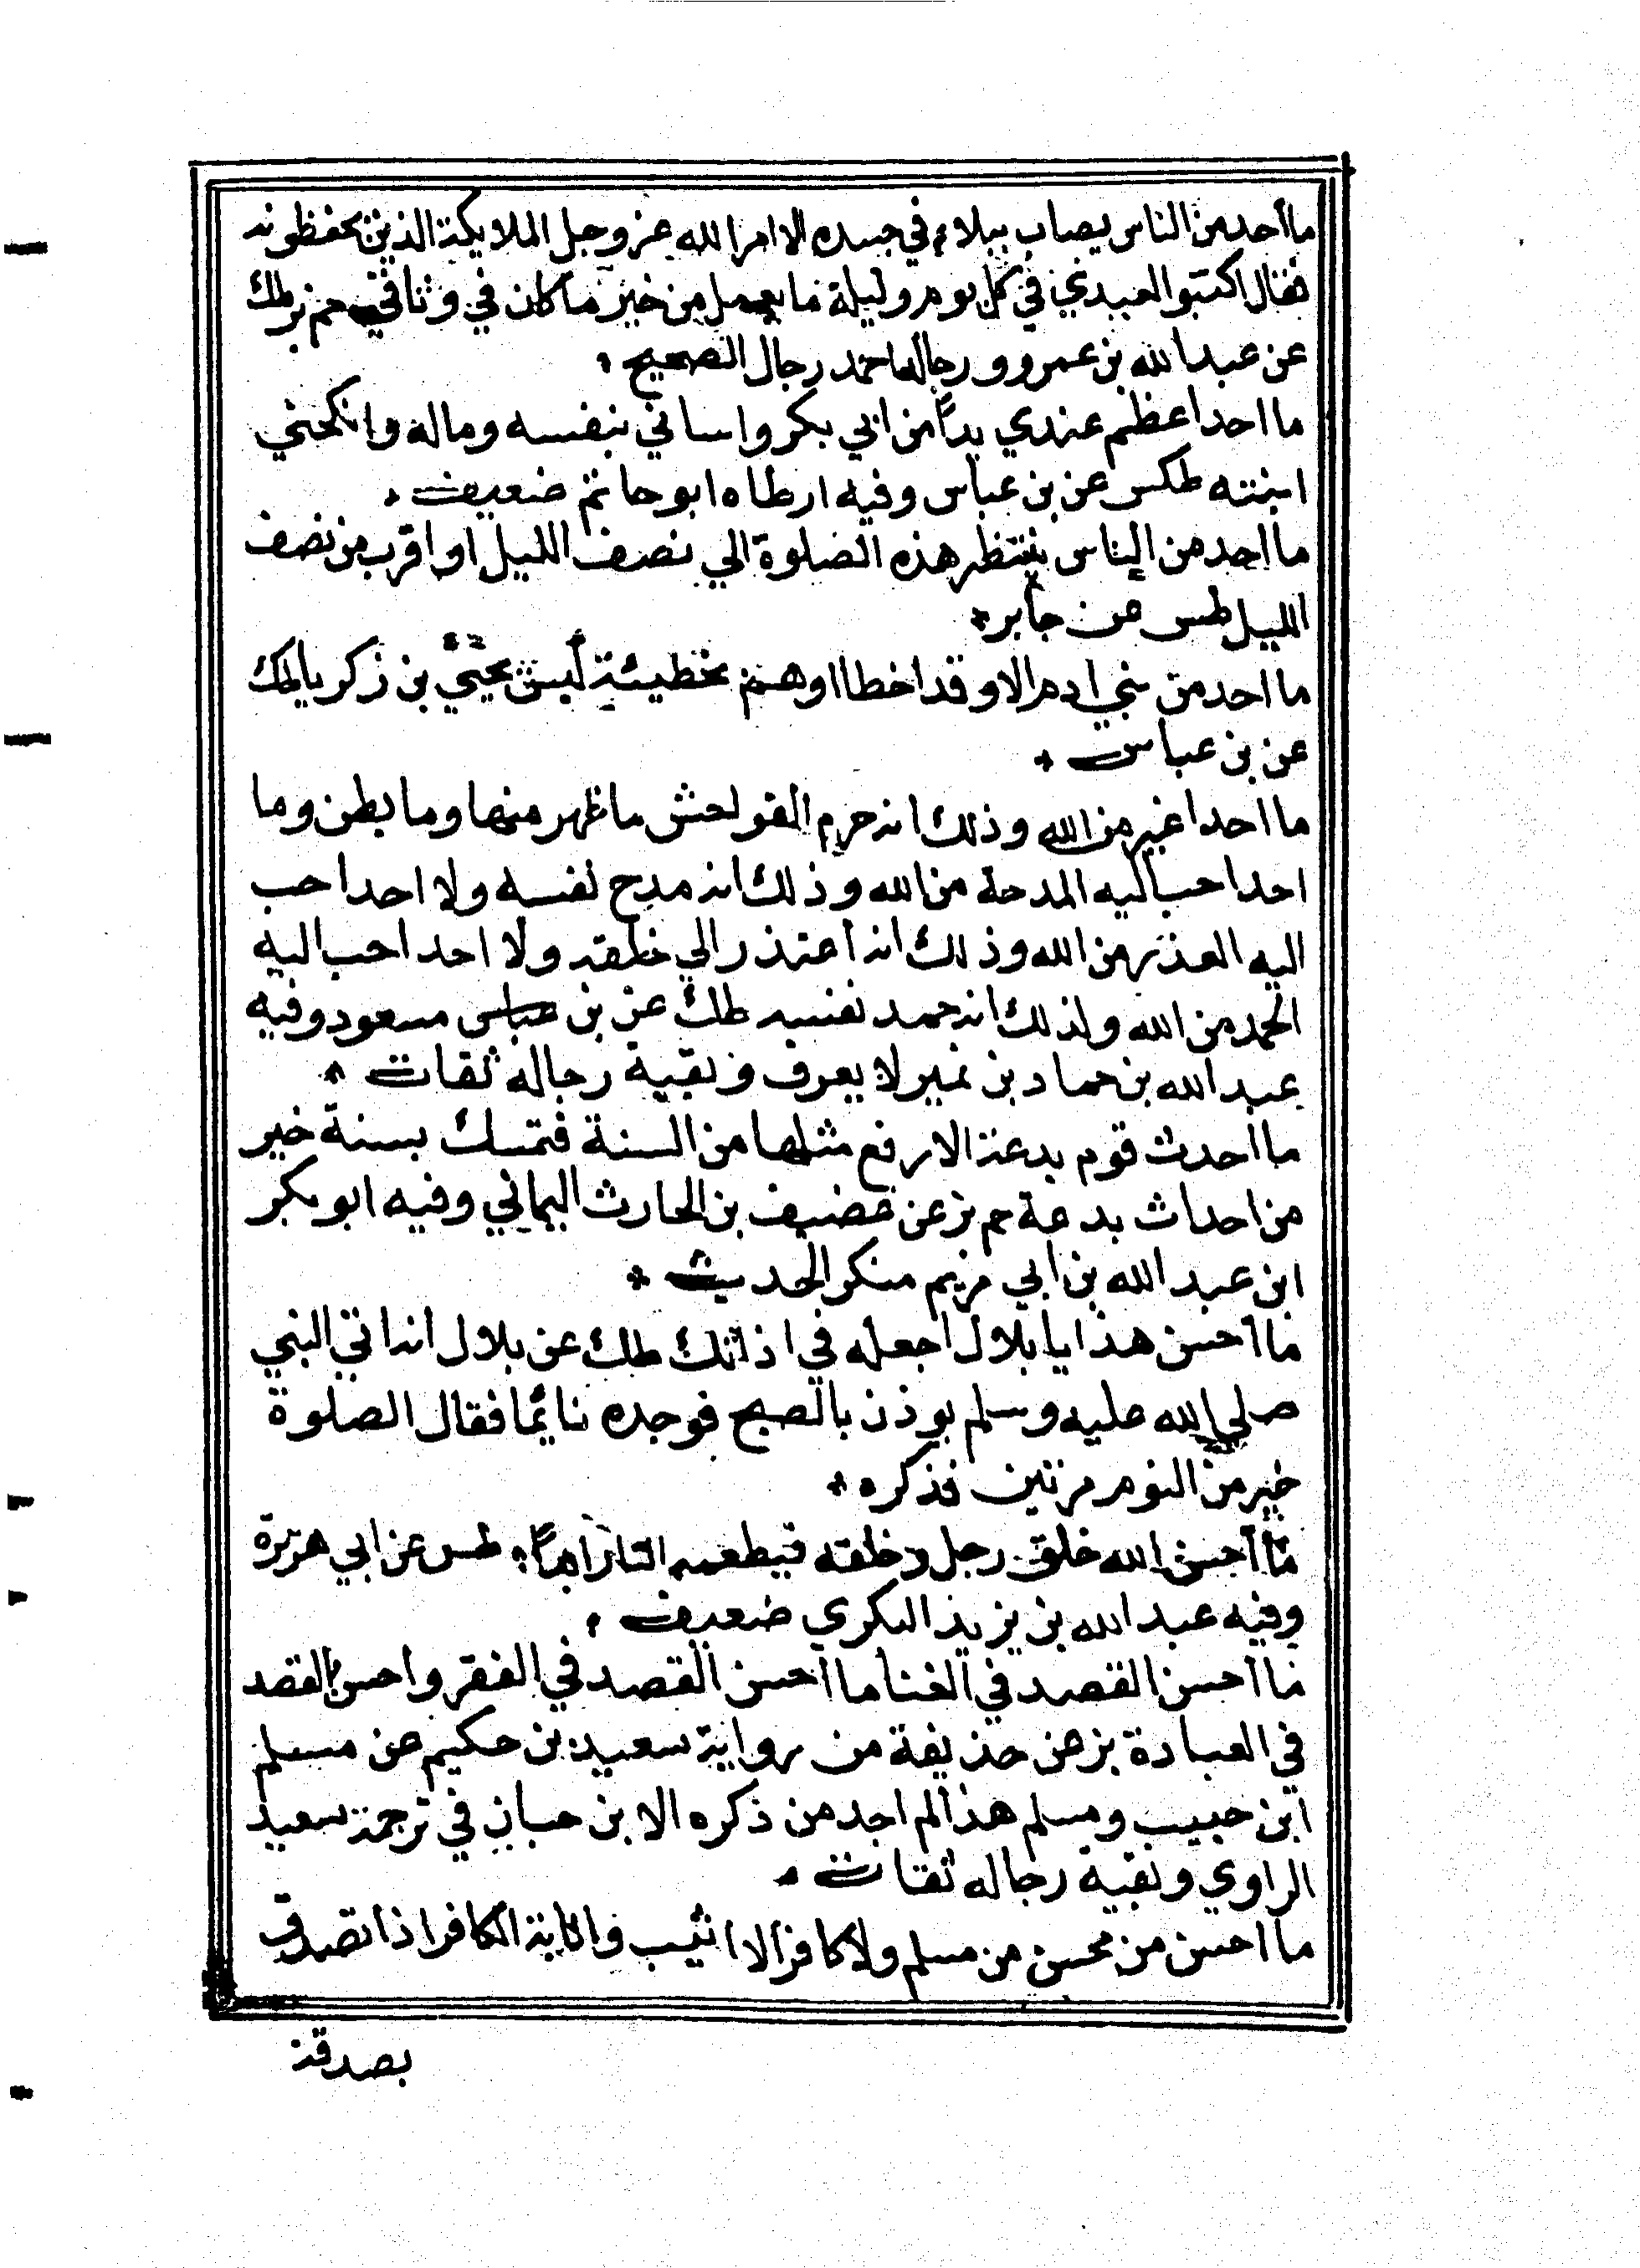 ما أحد من الناس يصاب ببلاء في جسده الا امر الله عز وجل الملايكة الذين يحفظونه
فقال اكتبوا لعبدي في كل يوم وليلة ما يعمل من خير ما كان في وثاقي حم بز طك
عن عبد الله بن عمرو ورجال احمد رجال الصحيح
ما احد اعظم عندي يدا من ابي بكر واساني بنفسه وماله وانكحني
ابنته طكس عن بن عباس وفيه ارطاه ابو حاتم ضعيف
ما احد من الناس ينتظر هذه الصلوة الي نصف الليل او اقرب من نصف
الليل طس عن جابر
ما احد من بني ادم الا وقد اخطا او هم بخطيئة ليس يحيي بن زكريا طك
عن بن عباس
ما احد اغير من الله وذلك انه حرم الفواحش ما ظهر منها وما بطن وما
احد احب اليه المدحة من الله وذلك انه مدح نفسه ولا احد احب
اليه العذر من الله وذلك انه اعتذر الي خلقه ولا احد احب اليه
الحمد من الله ولذلك انه حمد نفسه طك عن بن عباس مسعود وفيه
عبد الله بن حماد بن نمير لا يعرف وبقية رجاله ثقات
ما احدث قوم بدعة الا رفع مثلها من السنة فتمسك بسنة خير
من احداث بدعة حم بز عن غضيف بن الحارث اليماني وفيه ابو بكر
ابن عبد الله بن ابي مريم منكر الحديث
ما احسن هذا يا بلال اجعله في اذانك طك عن بلال انه اتي النبي
صلي الله عليه وسلم يوذن بالصبح فوجده نائما فقال الصلوة
خير من النوم مرتين فذكره
ما أحسن الله خلق رجل وخلقه فيطعمه النار ابدا طس عن ابي هريرة
وفيه عبد الله بن يزيد البكري ضعيف
ما احسن القصد في الغنا ما احسن القصد في الفقر واحسن القصد
في العبادة بز عن حذيفة من رواية سعيد بن حكيم عن مسلم
ابن حبيب ومسلم هذا لم اجد من ذكره الا بن حبان في ترجمة سعيد
الراوي وبقية رجاله ثقات
ما احسن من محسن من مسلم ولا كافر الا اثيب واثابة الكافر اذا تصدق
بصدقة